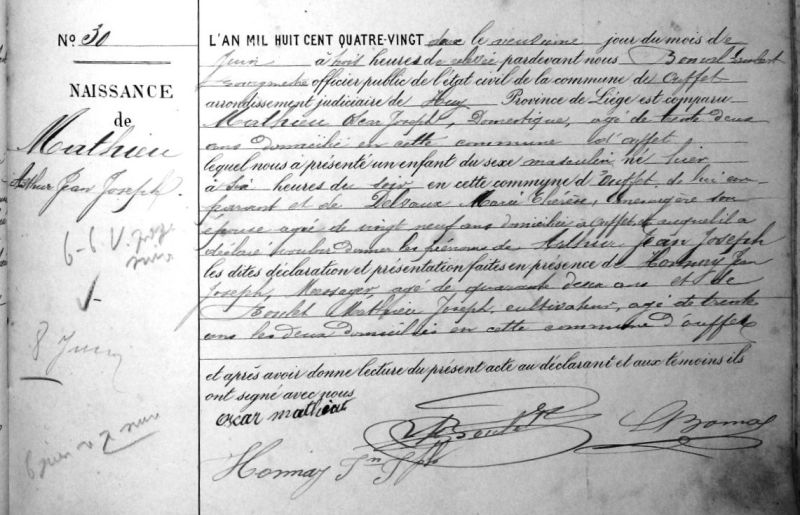 N° 30
NAISSANCE
de
Mathieu
Arthur Jean Joseph
8 Juin
L'AN MIL HUIT CENT QUATRE-VINGT deux le neuvième jour du mois de
Juin à huit heures de relevée pardevant nous Lambert
Bourgmestre officier public de l'état civil de la commune de Ouffet
arrondissement judiciaire de Huy Province de Liége est comparu
Mathieu Joseph, Domestique, agé de trente deux
ans domicilié en cette commune d'ouffet
lequel nous à présenté un enfant du sexe masculin né hier
à six heures du soir en cette commune d'Ouffet, de lui com
parant et de Delvaux Marie Thérèse, ménagère son
épouse agée de vingt neuf ans domiciliée à Ouffet et auquel il a
déclaré vouloir donner les prénoms de Arthur Jean Joseph
les dites déclaration et présentation faites en présence de Honnay Jean
Joseph, Messager, agé de quarante deux ans et de
Mathieu Joseph, cultivateur, agé de trente
ans les deux domiciliés en cette commune d'ouffet
et après avoir donné lecture du présent acte au déclarant et aux témoins ils
ont signé avec nous
oscar mathieu
Honnay Jn Jph